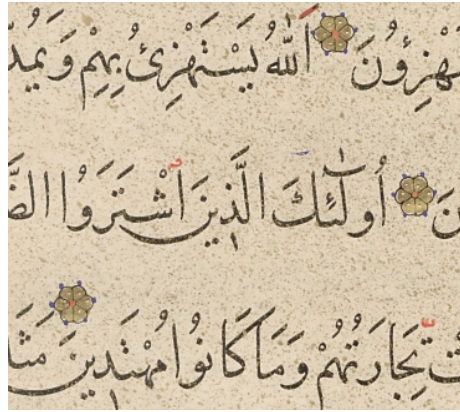 تَهْزِؤُنَ اَللّٰهُ يَسْتَهْزِئُ بِهِمْ وَيَمُدُّ
نَ اُولٰٓئِكَ الَّذينَ اشْتَرَوُا الضَّ
تْ تِجَارَتُهُمْ وَمَا كَانُوا مُهْتَدينَ مَثَ